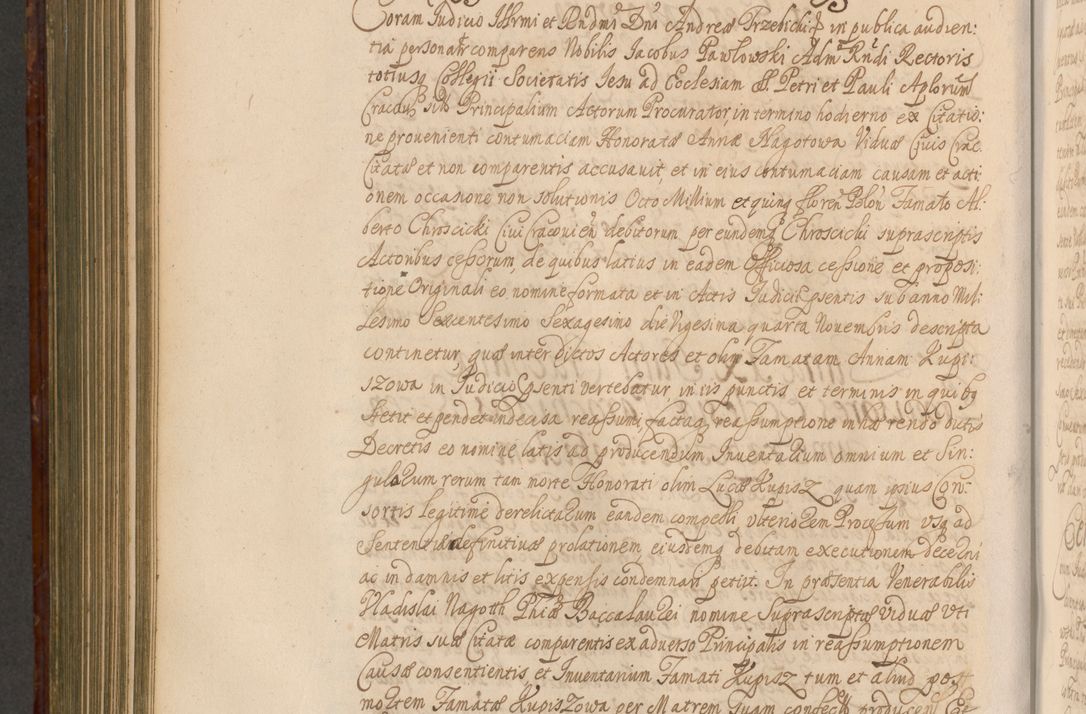 Coram Judicio Illrmi et Rndmi Dni Andreæ Trzebicki in publica audien:
tia personatr comparens Nobilis Jacobus Pawlowski Adm Rndi Rectoris
totiusq Collegii Societatis Jesu ad Ecclesiam S. Petri et Pauli Aplorum
Principalium Actorum Procurator, in termino hodierno ex Citatio:
ne provenienti contumaciam Honoratæ Annæ Nagotowa Viduæ Civis Crac.
Citatæ et non comparentis accusavit, et in eius contumaciam causam et acti
onem occasione non solutionis Octo Millium et quing floren Polon Famato Al:
berto Chroscicki Civi Cracouien debitorum per eundemq Chroscicki suprascriptis
Actoribus cessorum, de quibus latius in eadem Officiosa cessione et proposi:
tione Originali eo nomine formata et in Actis Judicii psentis sub anno Mil:
lesimo Sexcentesimo Sexagesimo die Vigesima quarta Novembris descripta
continetur, quæ inter dictos Actores et olim Famatam Annam Kupi:
szowa in Judicio psenti vertebatur, in iis punctis et terminis in quibq
stetit et pendet indecisa reassumi, factaq reassumptione inhærendo dictis
Decretis eo nomine latis ad producendum Inventarium omnium et Sin:
gularum rerum tam morte Honorati olim Lucæ Kupisz quam ipsius Con:
sortis legitime derelictarum eandem compelli ulteriorem Processum usq ad
Sententiæ definitivæ prolationem, eiusdemq debitam executionem decerni
ac in damnis et litis expensis condemnari petiit. In præsentia Venerabilis
Vladislai Nagoth Phiæ Baccalaurei nomine Suprascriptæ Viduæ uti
Matris suæ Citatæ comparentis ex adverso Principalis in reassumptionem
Causæ consentientis, et Inventarium Famati Kupisz tum et aliud post
mortem Famatæ Kupiszowa per Matrem suam